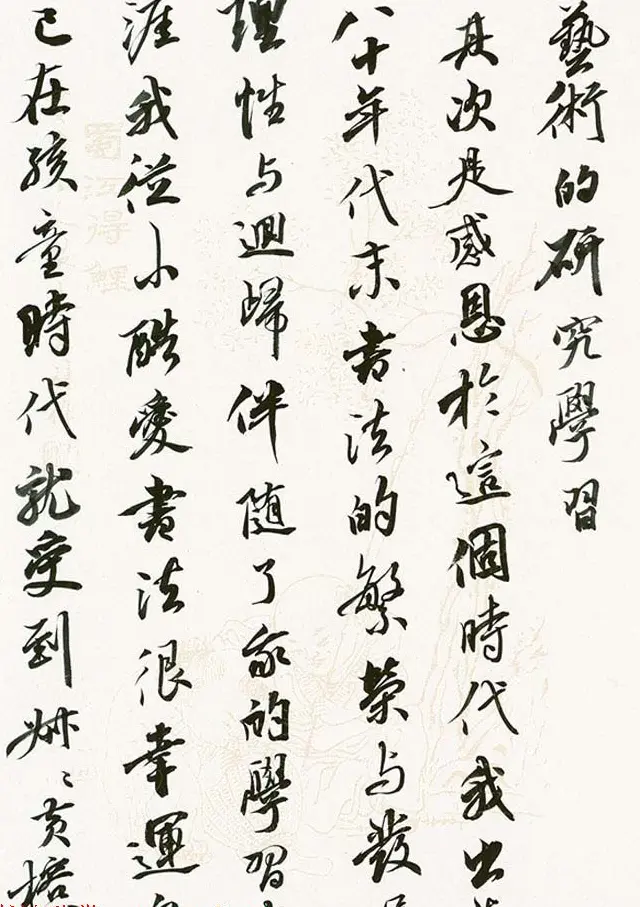 藝術的研究學習
其次是感恩於這個時代我出
八十年代末書法的繁榮與發
理性與迴歸伴随了我的學習
涯我從小酷愛書法很幸運
已在孩童時代就受到
蜀江得鯉